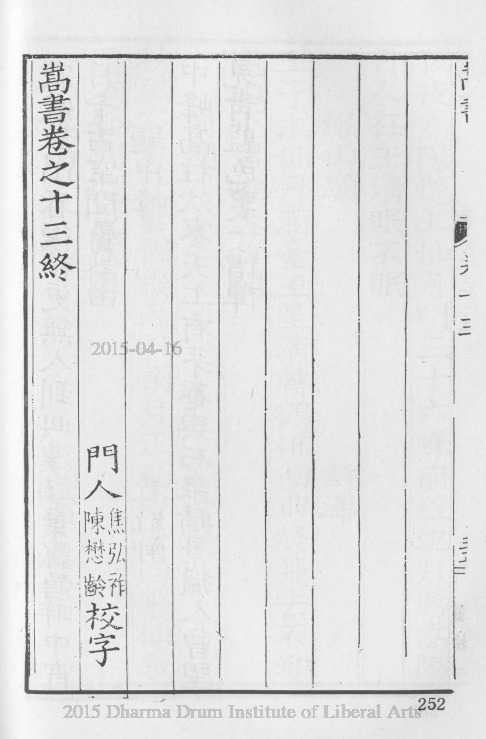 嵩書
卷十三
門人焦弘祚陳懋齡校字
嵩書卷之十三終
2015-04-16
252
2015 Dharma Drum Institute of Liberal Arts